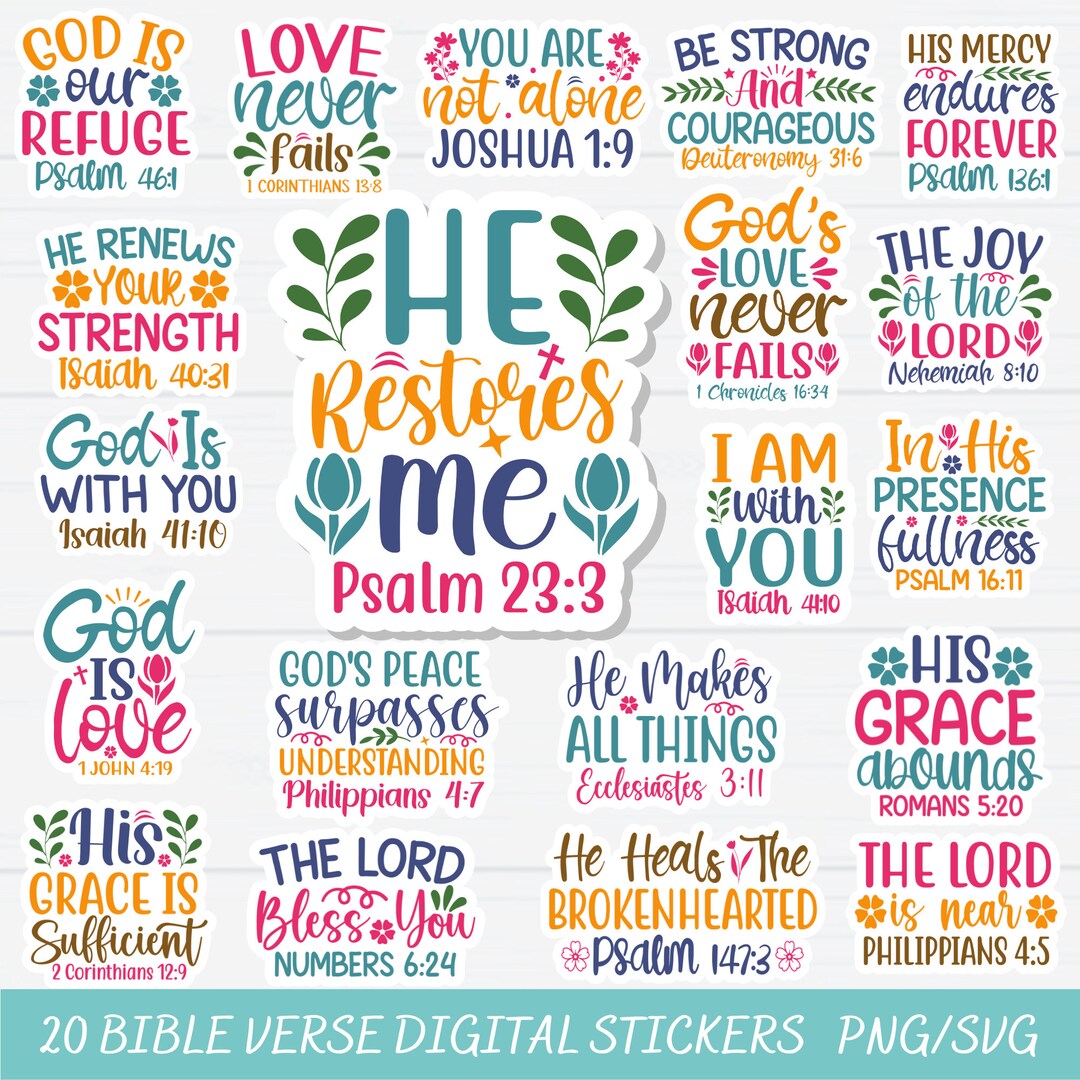 GOD IS
our
REFUGE
Psalm 46:1
LOVE
never
fails
1 CORINTHIANS 13:8
YOU ARE
not alone
JOSHUA 1:9
BE STRONG
And
COURAGEOUS
Deuteronomy 31:6
HIS MERCY
endures
FOREVER
Psalm 136:1
HE RENEWS
YOUR
STRENGTH
Isaiah 40:31
HE
Restores
me
Psalm 23:3
God's
LOVE
never
FAILS
1 Chronicles 16:34
THE JOY
of the
LORD
Nehemiah 8:10
God Is
WITH YOU
Isaiah 41:10
I AM
with
YOU
Isaiah 41:10
In His
PRESENCE
fullness
PSALM 16:11
God
IS
love
1 JOHN 4:19
GOD'S PEACE
surpasses
UNDERSTANDING
Philippians 4:7
He Makes
ALL THINGS
Ecclesiastes 3:11
HIS
GRACE
abounds
ROMANS 5:20
His
GRACE IS
Sufficient
2 Corinthians 12:9
THE LORD
Bless You
NUMBERS 6:24
He Heals The
BROKENHEARTED
Psalm 147:3
THE LORD
is near
PHILIPPIANS 4:5
20 BIBLE VERSE DIGITAL STICKERS PNG/SVG